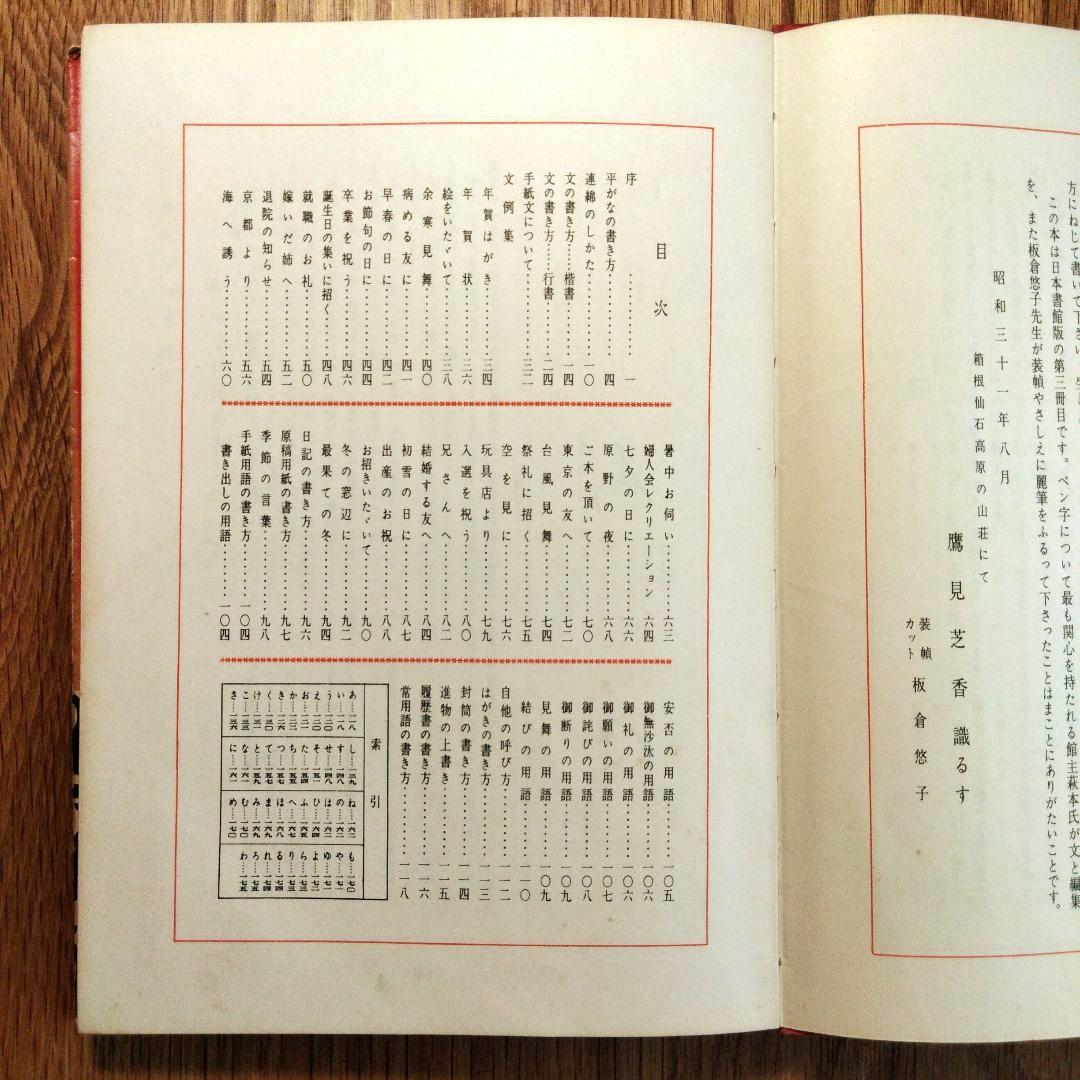 方にねじて書いて下さい。
この本は日本書館版の第三冊目です。ペン字について最も関心を持たれる館主萩本氏が文と編集
を、また板倉悠子先生が装幀やさしえに麗筆をふるって下さったことはまことにありがたいことです。
昭和三十一年八月
箱根仙石高原の山荘にて
鷹見芝香識るす
装幀
カット
板倉悠子
目次
序…………一
平がなの書き方…………四
連綿のしかた…………一〇
文の書き方……楷書…………一四
文の書き方……行書…………二四
手紙文について…………三二
文例集
年賀はがき…………三四
年賀状…………三六
絵をいたゞいて…………三八
余寒見舞…………四〇
病める友に…………四一
早春の日に…………四二
お節句の日に…………四四
卒業を祝う…………四六
誕生日の集いに招く…………四八
就職のお礼…………五〇
嫁いだ姉へ…………五二
退院の知らせ…………五四
京都より…………五六
海へ誘う…………六〇
暑中お伺い…………六三
婦人会レクリエーション…六四
七夕の日に…………六六
原野の夜…………六八
ご本を頂いて…………七〇
東京の友へ…………七二
台風見舞…………七四
祭礼に招く…………七五
空を見に…………七六
玩具店より…………七九
入選を祝う…………八〇
兄さんへ…………八二
結婚する友へ…………八四
初雪の日に…………八七
出産のお祝…………八八
お招きいたゞいて…………九〇
冬の窓辺に…………九二
最果ての冬…………九四
日記の書き方…………九六
原稿用紙の書き方…………九七
季節の言葉…………九八
手紙用語の書き方…………一〇四
書き出しの用語…………一〇四
安否の用語…………一〇五
御無沙汰の用語…………一〇六
御礼の用語…………一〇六
御願いの用語…………一〇七
御詫びの用語…………一〇八
御断りの用語…………一〇九
見舞の用語…………一〇九
結びの用語…………一一〇
自他の呼び方…………一一二
はがきの書き方…………一一三
封筒の書き方…………一一四
進物の上書き…………一一五
履歴書の書き方…………一一六
常用語の書き方…………一一八
索引
あ
い
う
え
お
か
き
く…一三〇
け…一三一
こ…一三三
さ…一三六
し…一三九
す
せ…一四八
そ…一五一
た…一五四
ち…一五五
つ…一五五
て…一五七
と…一五九
な
に…一六一
ね…一六二
の…一六二
は…一六二
ひ…一六四
ふ…一六五
へ…一六七
ほ…一六八
ま…一六九
み…一六九
む…一七〇
め…一七〇
も…一七〇
や…一七一
ゆ…一七一
よ…一七二
ら…一七三
り…一七三
る…一七四
れ…一七四
ろ…一七五
わ…一七五